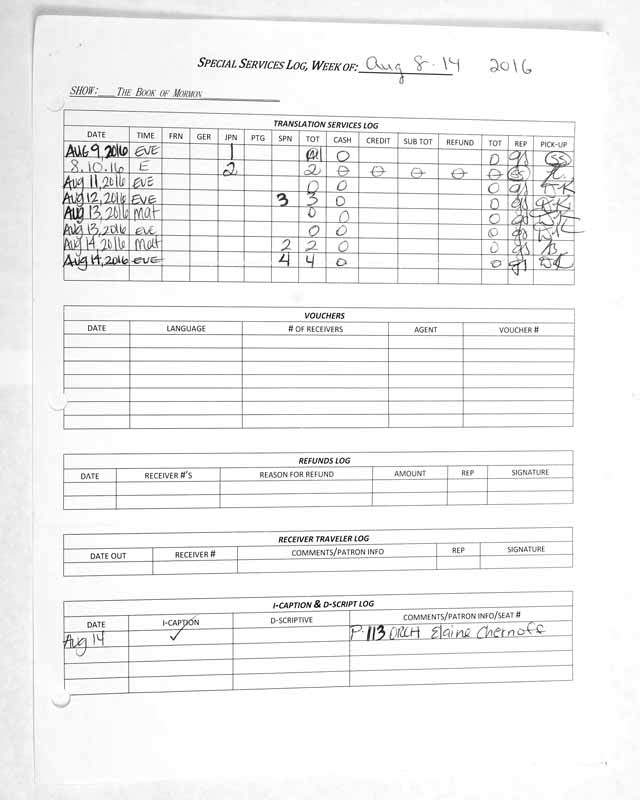 SPECIAL SERVICES LOG, WEEK OF: Aug 8-14 2016
SHOW: THE BOOK OF MORMON
TRANSLATION SERVICES LOG
DATE TIME FRN GER JPN PTG SPN TOT CASH CREDIT SUB TOT REFUND TOT REP PICK-UP
AUG 9, 2016 EVE 1 0 0 gs SS
8.10.16 E 2 2 0 0 0 0 0 SS
Aug 11, 2016 EVE 0 0 0 gs
Aug 12, 2016 EVE 3 3 0 0 gs
Aug 13, 2016 Mat 0 0 0 gs
Aug 13, 2016 EVE 0 0 0 gs
Aug 14, 2016 Mat 2 2 0 0 gs
Aug 14, 2016 EVE 4 4 0 0 gs
VOUCHERS
DATE LANGUAGE # OF RECEIVERS AGENT VOUCHER #
REFUNDS LOG
DATE RECEIVER #'S REASON FOR REFUND AMOUNT REP SIGNATURE
RECEIVER TRAVELER LOG
DATE OUT RECEIVER # COMMENTS/PATRON INFO REP SIGNATURE
I-CAPTION & D-SCRIPT LOG
DATE I-CAPTION D-SCRIPTIVE COMMENTS/PATRON INFO/SEAT #
Aug 14 ✓ P-113 ORCH Elaine Chernoff